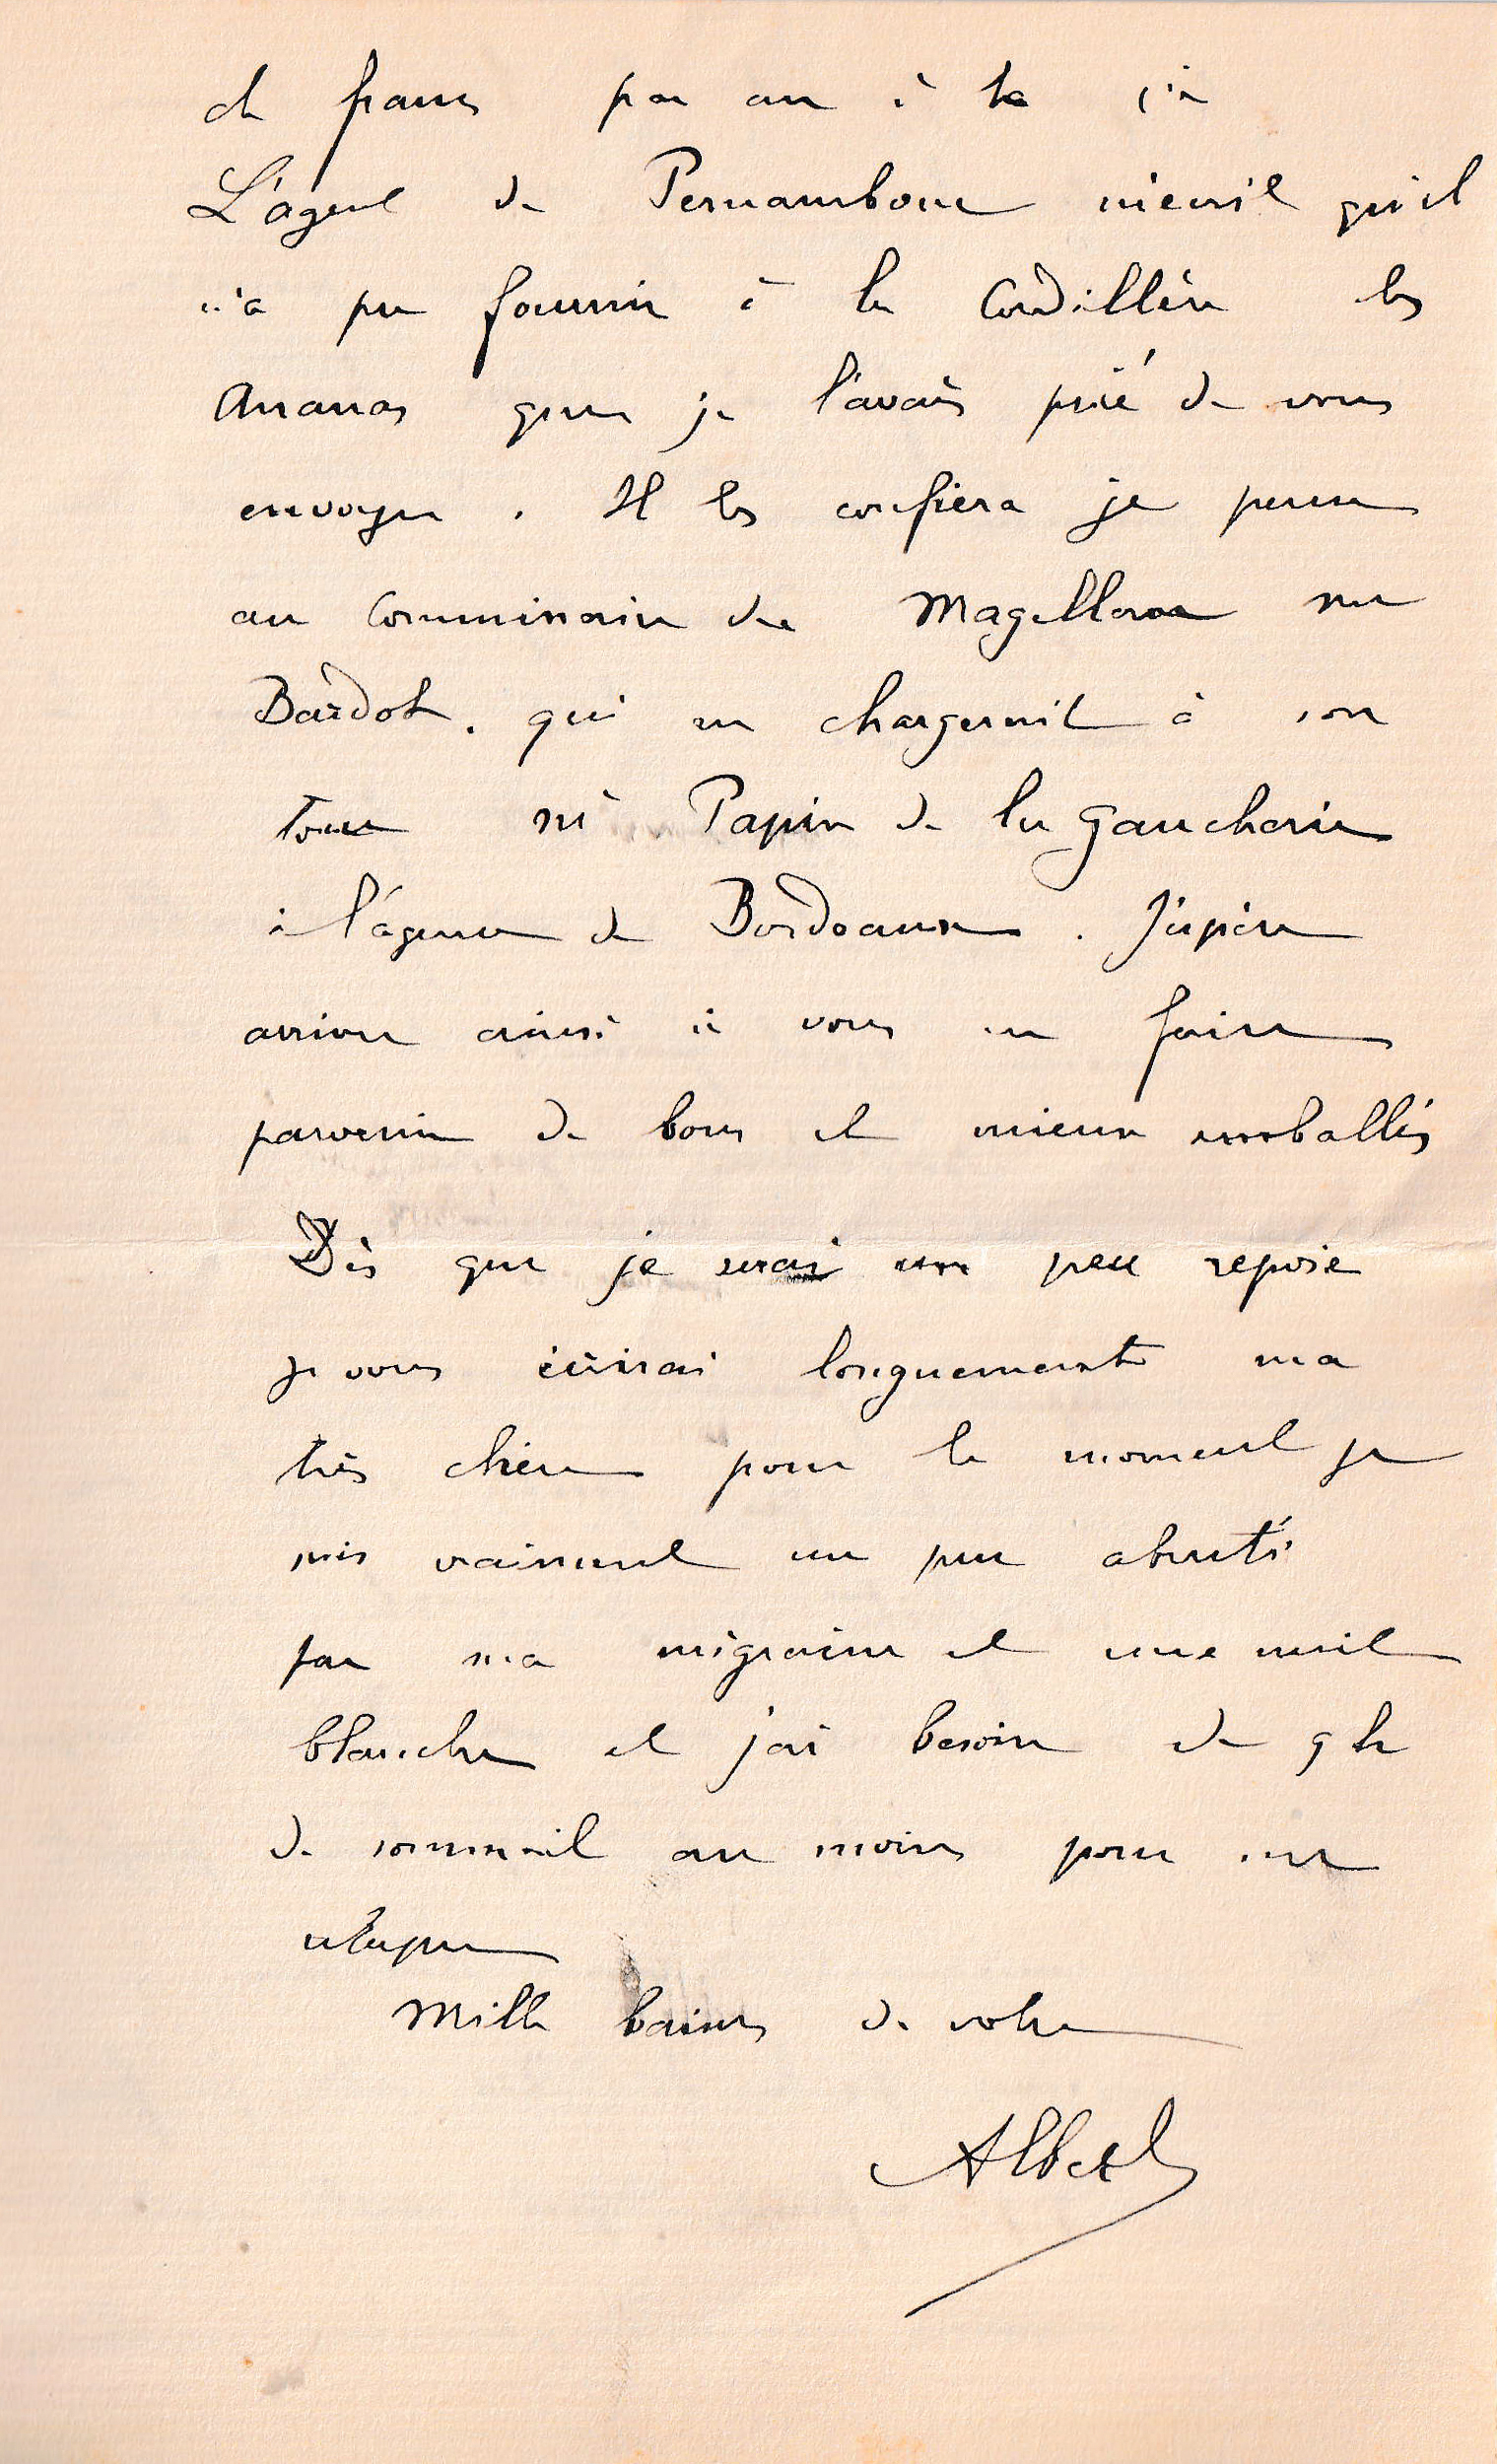 de francs par an à la Cie
L'agent de Pernambouc m'écrit qu'il
n'a pu fournir à la Cordillère les
Ananas que je l'avais prié de vous
envoyer. Il les confiera je pense
au Commissaire du Magellan mr
Bardot. qui en chargerait à son
tour mr Papin de la Gaucherie
à l'agence de Bordeaux. J'espère
arriver ainsi à vous en faire
parvenir de bons et mieux emballés
Dès que je serai un peu reposé
je vous écrirai longuement ma
très chère pour le moment je
suis vraiment un peu abruti
par ma migraine et une nuit
blanche et j'ai besoin de 9 h
de sommeil au moins pour me
retaper
Mille baisers de votre
Albert